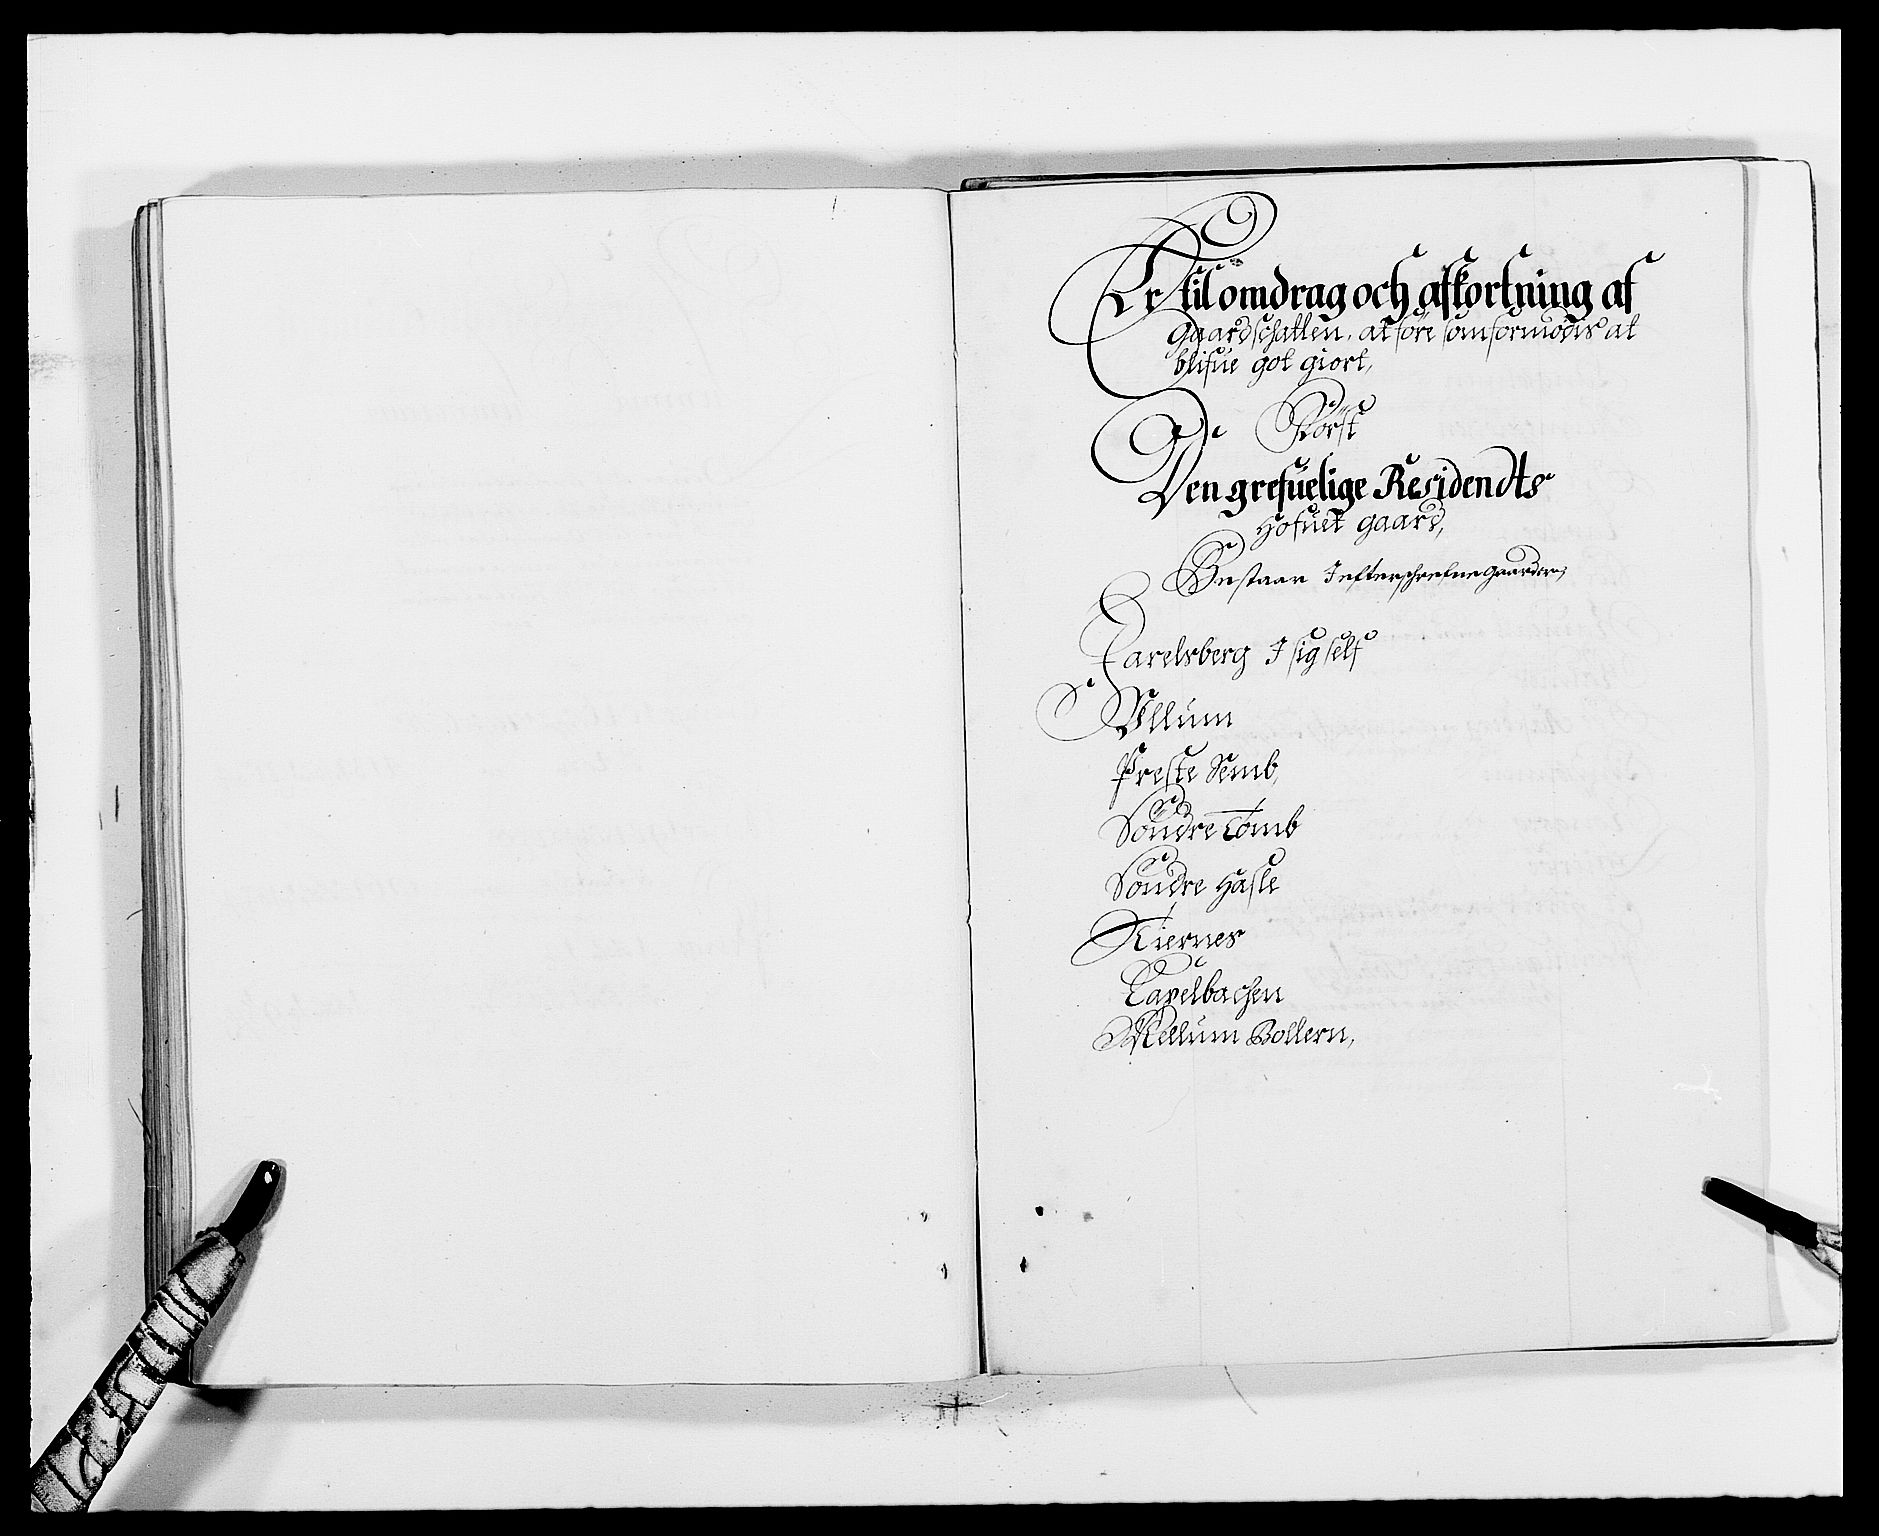 Er til omdrag och afkortning af
Gaardschatten, at føre som formodis at
blifue got giort,
Först
Den grefuelige Residendts
Hofuet gaard,
Bestaar I efterschrefne gaarder,
Carelsberg I sig self
Ullum
Preste Semb,
Söndre Tomb
Söndre Hasle
Kiernes
Tavelbachen
Mellum Bollern,